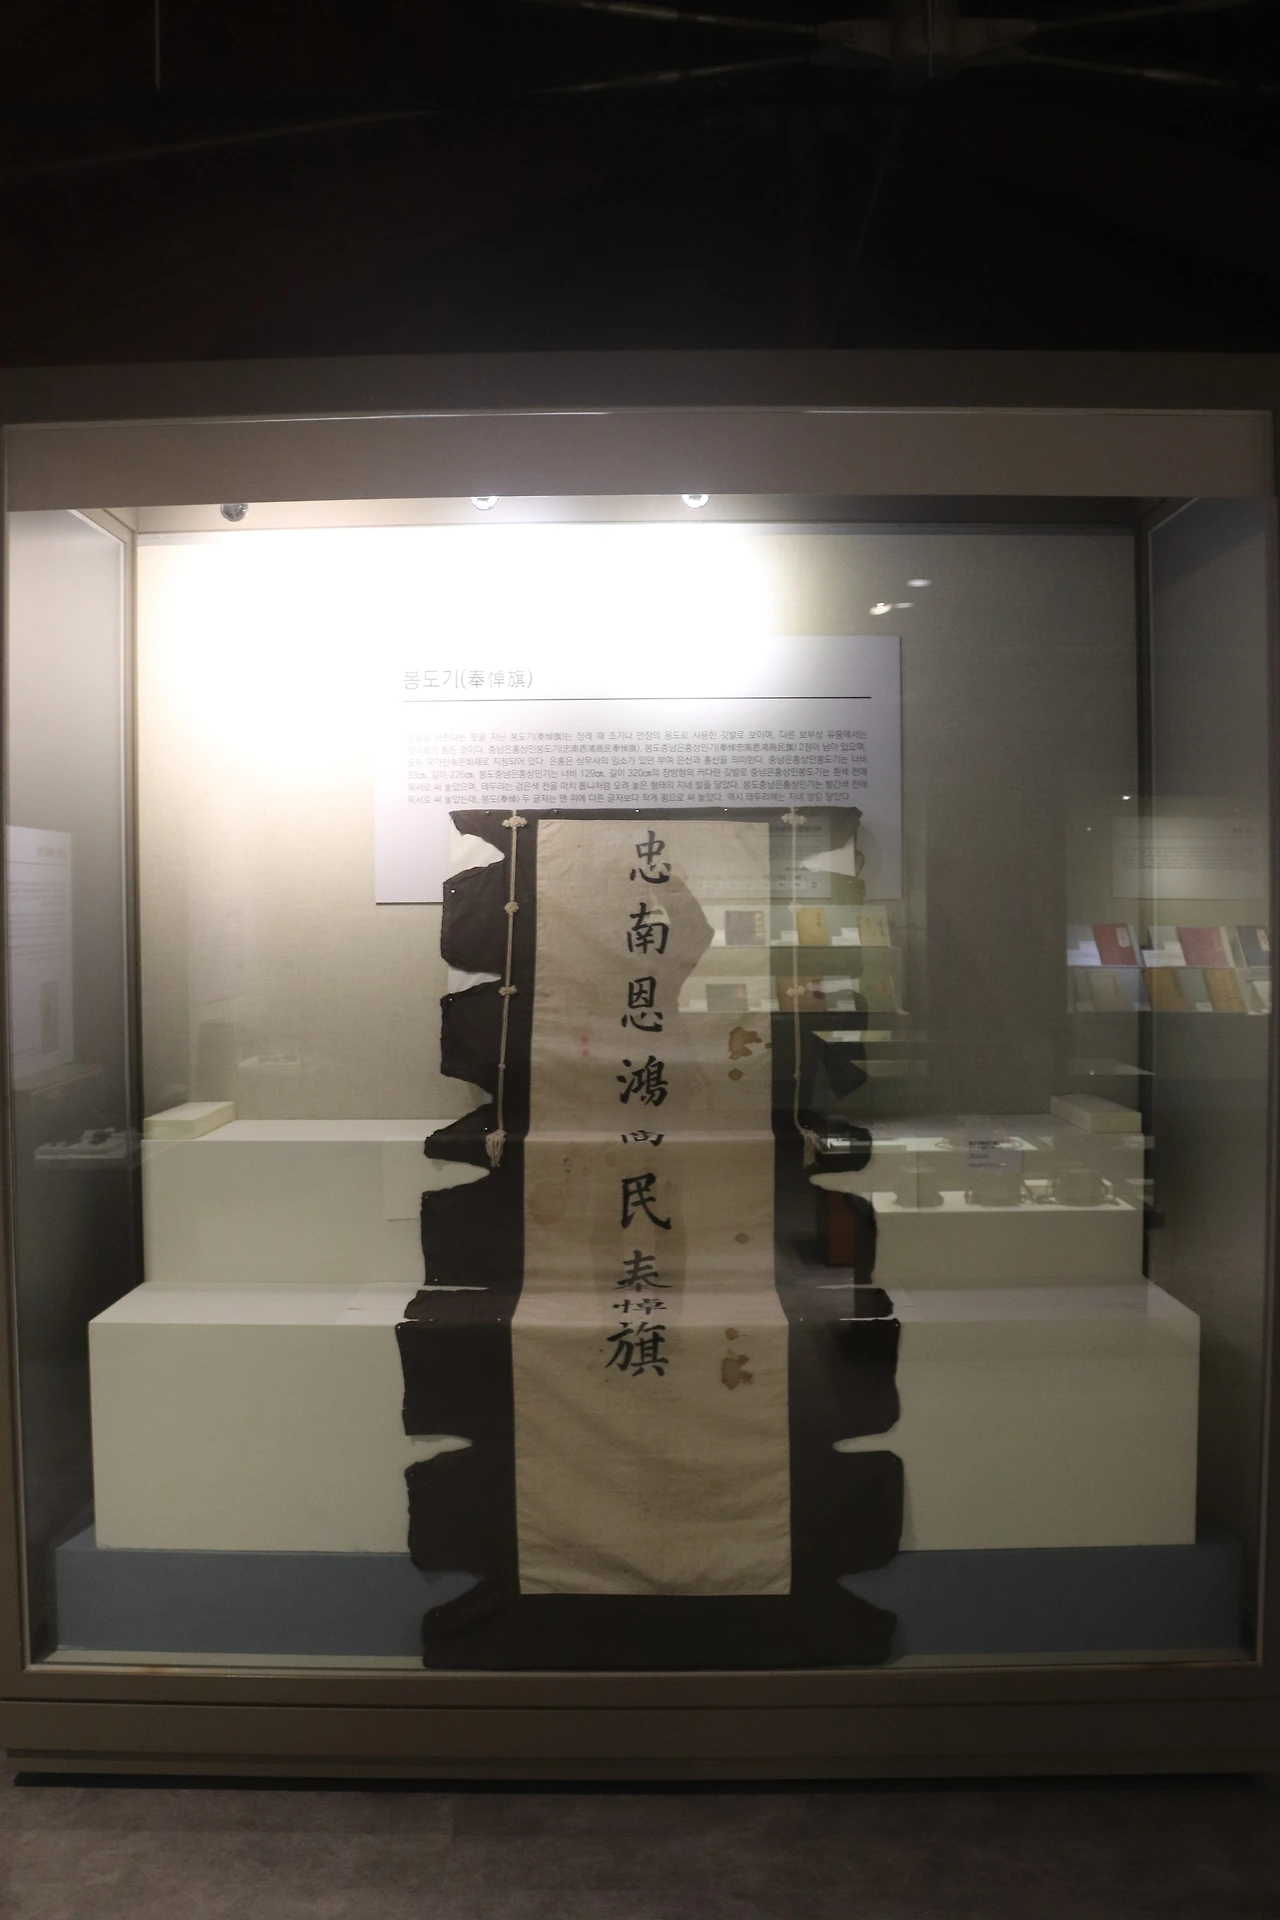 봉도기(奉悼旗)
바친다는 뜻을 지닌 봉도기(奉悼旗)는 장례 때 조기나 만장의 용도로 사용한 깃발로 보이며, 다른 보부상 유품에서는
찾아보기 힘든 것이다. 충남은홍상민봉도기(忠南恩鴻商民奉悼旗), 봉도충남은홍상민기(奉悼忠南恩鴻商民旗) 2점이 남아 있으며,
모두 국가민속문화재로 지정되어 있다. 은홍은 상무사의 임소가 있던 부여 은산과 홍산을 의미한다. 충남은홍상민봉도기는 너비
93㎝, 길이 226㎝, 봉도충남은홍상민기는 너비 129㎝, 길이 320㎝의 장방형의 커다란 깃발로 충남은홍상민봉도기는 흰색 천에
묵서로 써 놓았으며, 테두리는 검은색 천을 마치 톱니처럼 오려 놓은 형태의 지네 발을 달았다. 봉도충남은홍상민기는 빨간색 천에
묵서로 써 놓았는데, 봉도(奉悼) 두 글자는 맨 위에 다른 글자보다 작게 횡으로 써 놓았다. 역시 테두리에는 지네 발깁 달았다.
忠南恩鴻商民奉悼旗